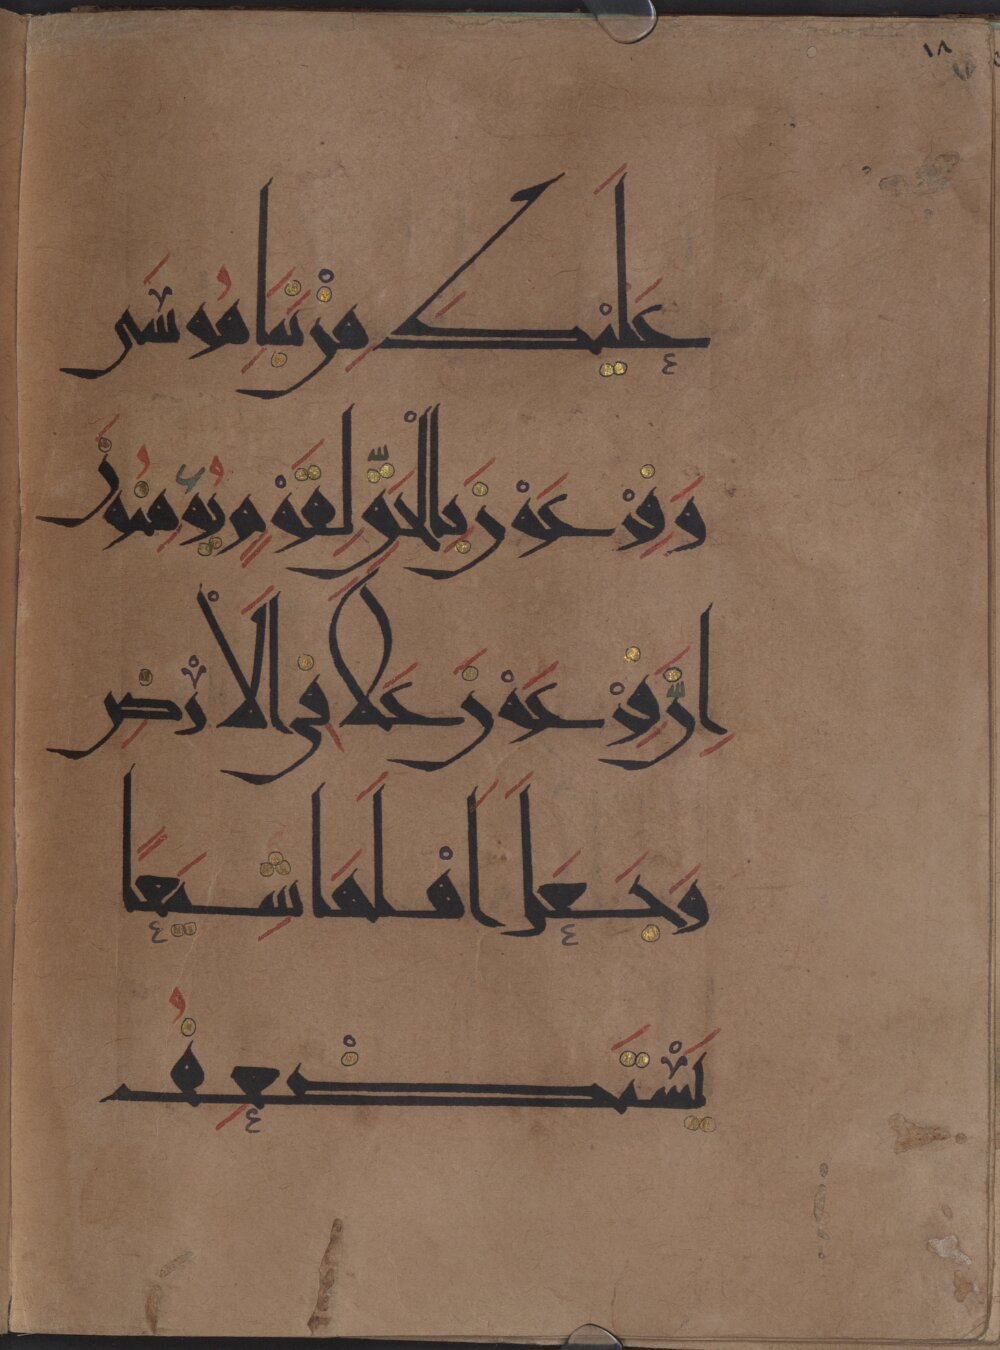 ١٨
عَلَيْكَ مِنْ نَبَاِ مُوسَى
وَفِرْعَوْنَ بِالْحَقِّ لِقَوْمٍ يُؤْمِنُونَ
اِنَّ فِرْعَوْنَ عَلَا فِى الْاَرْضِ
وَجَعَلَ اَهْلَهَا شِيَعًا
يَسْتَضْعِفُ